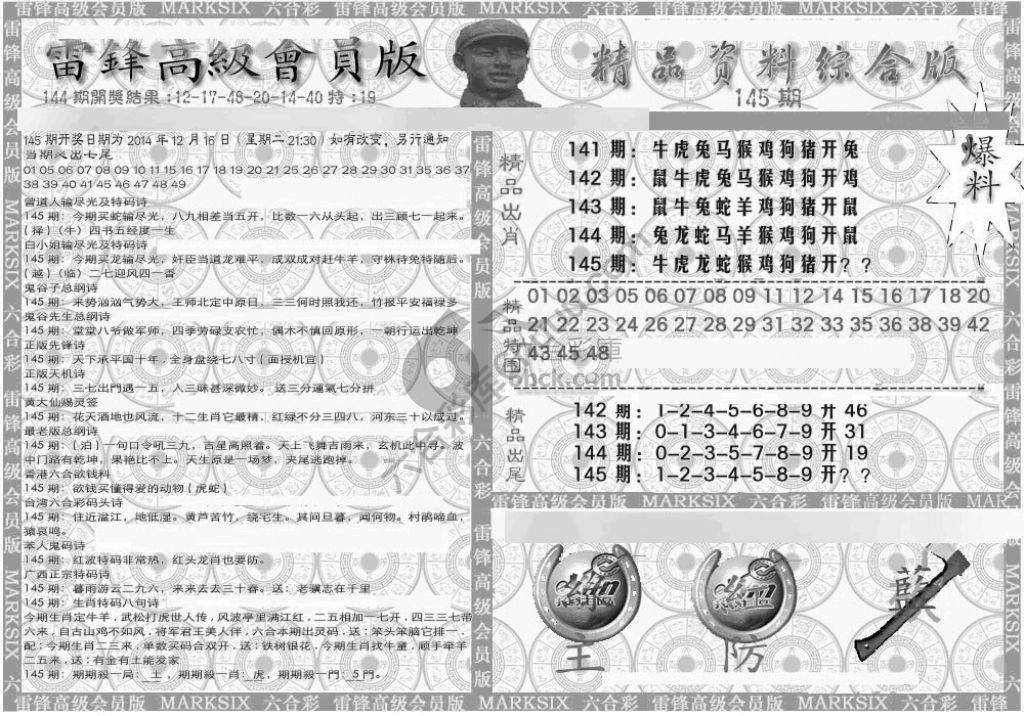 雷锋高级会员版 MARKSIX 六合彩 雷锋高级会员版 MARKSIX 六合彩 雷锋高级会员版 MARKSIX 六合彩 雷锋
雷鋒高級會員版
精品资料综合版
144 期開獎結果:12-17-46-20-14-40 特:19
145 期
爆料
145 期开奖日期为 2014 年 12 月 16 日(星期二 21:30)如有改变,另行通知
01 05 06 07 08 09 10 11 15 16 17 18 19 20 21 25 26 27 28 29 30 31 35 36 37
38 39 40 41 45 46 47 48 49
曾道人输尽光及特码诗
145 期:今期买蛇输尽光,八九相差当五开,比数一六从头起,出三顾七一起来。
(择)(牛)四书五经度一生
白小姐输尽光及特码诗
145 期:今期买龙输尽光,奸臣当道龙难平,成双成对赶牛羊,守株待兔特随后。
(越)(临)二七迎风四一香
鬼谷子总纲诗
145 期:来势汹汹气势大,王师北定中原日,三三何时照我还,竹报平安福禄多
鬼谷先生总纲诗
145 期:堂堂八爷做军师,四季劳碌支农忙,偶木不慎回原形,一朝行运出乾坤
正版先锋诗
145 期:天下承平国十年,全身盘绕七八寸(面授机宜)
正版天机诗
145 期:三七出門遇一五,人三昧甚深微妙。送三分運氣七分拼
黄大仙赐灵签
145 期:花天酒地也风流,十二生肖它最精,红绿不分三四八,河东三十以成过。
最老版总纲诗
145 期:(泊)一句口令吼三九,吉星高照着。天上飞舞吉雨来,玄机此中寻。波
中门路有乾坤,果艳比不上。天生原是一场梦,夹尾逃跑掉。
香港六合欲钱料
145 期:欲钱买懂得爱的动物(虎蛇)
台湾六合彩码头诗
145 期:住近湓江,地低湿。黄芦苦竹,绕宅生。其间旦暮,闻何物。村鹃啼血,
猿哀鸣。
本人鬼码诗
145 期:红波特码非常热,红头龙肖也要防。
广西正宗特码诗
145 期:暮雨游云二九六,来来去去三十春。送:老骥志在千里
145 期:生肖特码八句诗
今期生肖定牛羊,武松打虎世人传,风波亭里满江红,二五相加一七开,四三三七带
六来,自古山鸡不如风,将军君王美人伴,六合本期出灵码,送:笨头笨脑它排一,
配:今期生肖二三来,单数买码合双开,送:铁树银花,今期生肖找牛童,顺手牵羊
二五来,送:有金有土能发家
145 期:期期殺一局:土,期期殺一肖:虎,期期殺一門:5 門。
精品出肖
141 期:牛虎兔马猴鸡狗猪开兔
142 期:鼠牛虎兔马猴鸡狗开鸡
143 期:鼠牛兔蛇羊鸡狗猪开鼠
144 期:兔龙蛇马羊猴鸡狗开鼠
145 期:牛虎龙蛇猴鸡狗猪开??
精品特围
01 02 03 05 06 07 08 09 11 12 13 14 15 16 17 18 20
21 22 23 24 26 27 28 29 31 32 33 35 36 38 39 42
43 45 48
精品出尾
142 期:1-2-4-5-6-8-9 开 46
143 期:0-1-3-4-6-7-9 开 31
144 期:0-2-3-5-7-8-9 开 19
145 期:1-2-3-4-5-8-9 开??
雷锋高级会员版 MARKSIX 六合彩 雷锋高级会员版 MARKSIX
主
防
藍
雷锋高级会员版 MARKSIX 六合彩 雷锋高级会员版 MARKSIX 六合彩 雷锋高级会员版 MARKSIX 六合彩 雷锋